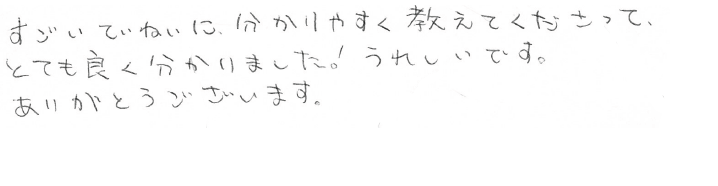 すごいていねいに、分かりやすく教えてくださって、
とても良く分かりました!うれしいです。
ありがとうございます。